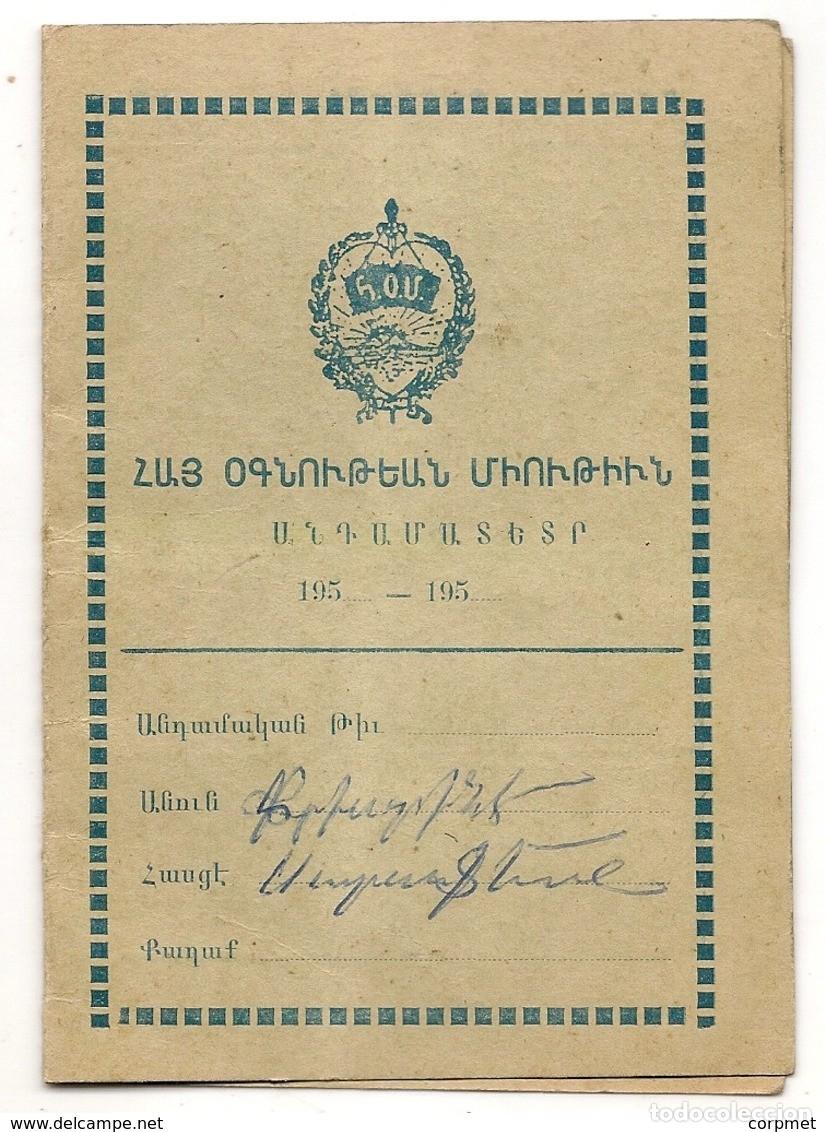 Հ.Օ.Մ.
ՀԱՅ ՕԳՆՈՒԹԵԱՆ ՄԻՈՒԹԻՒՆ
ԱՆԴԱՄԱՏԵՏՐ
195 — 195
Անդամական Թիւ
Անուն
Հասցէ
Քաղաք
todocoleccion
www.delcampe.net
corpmet